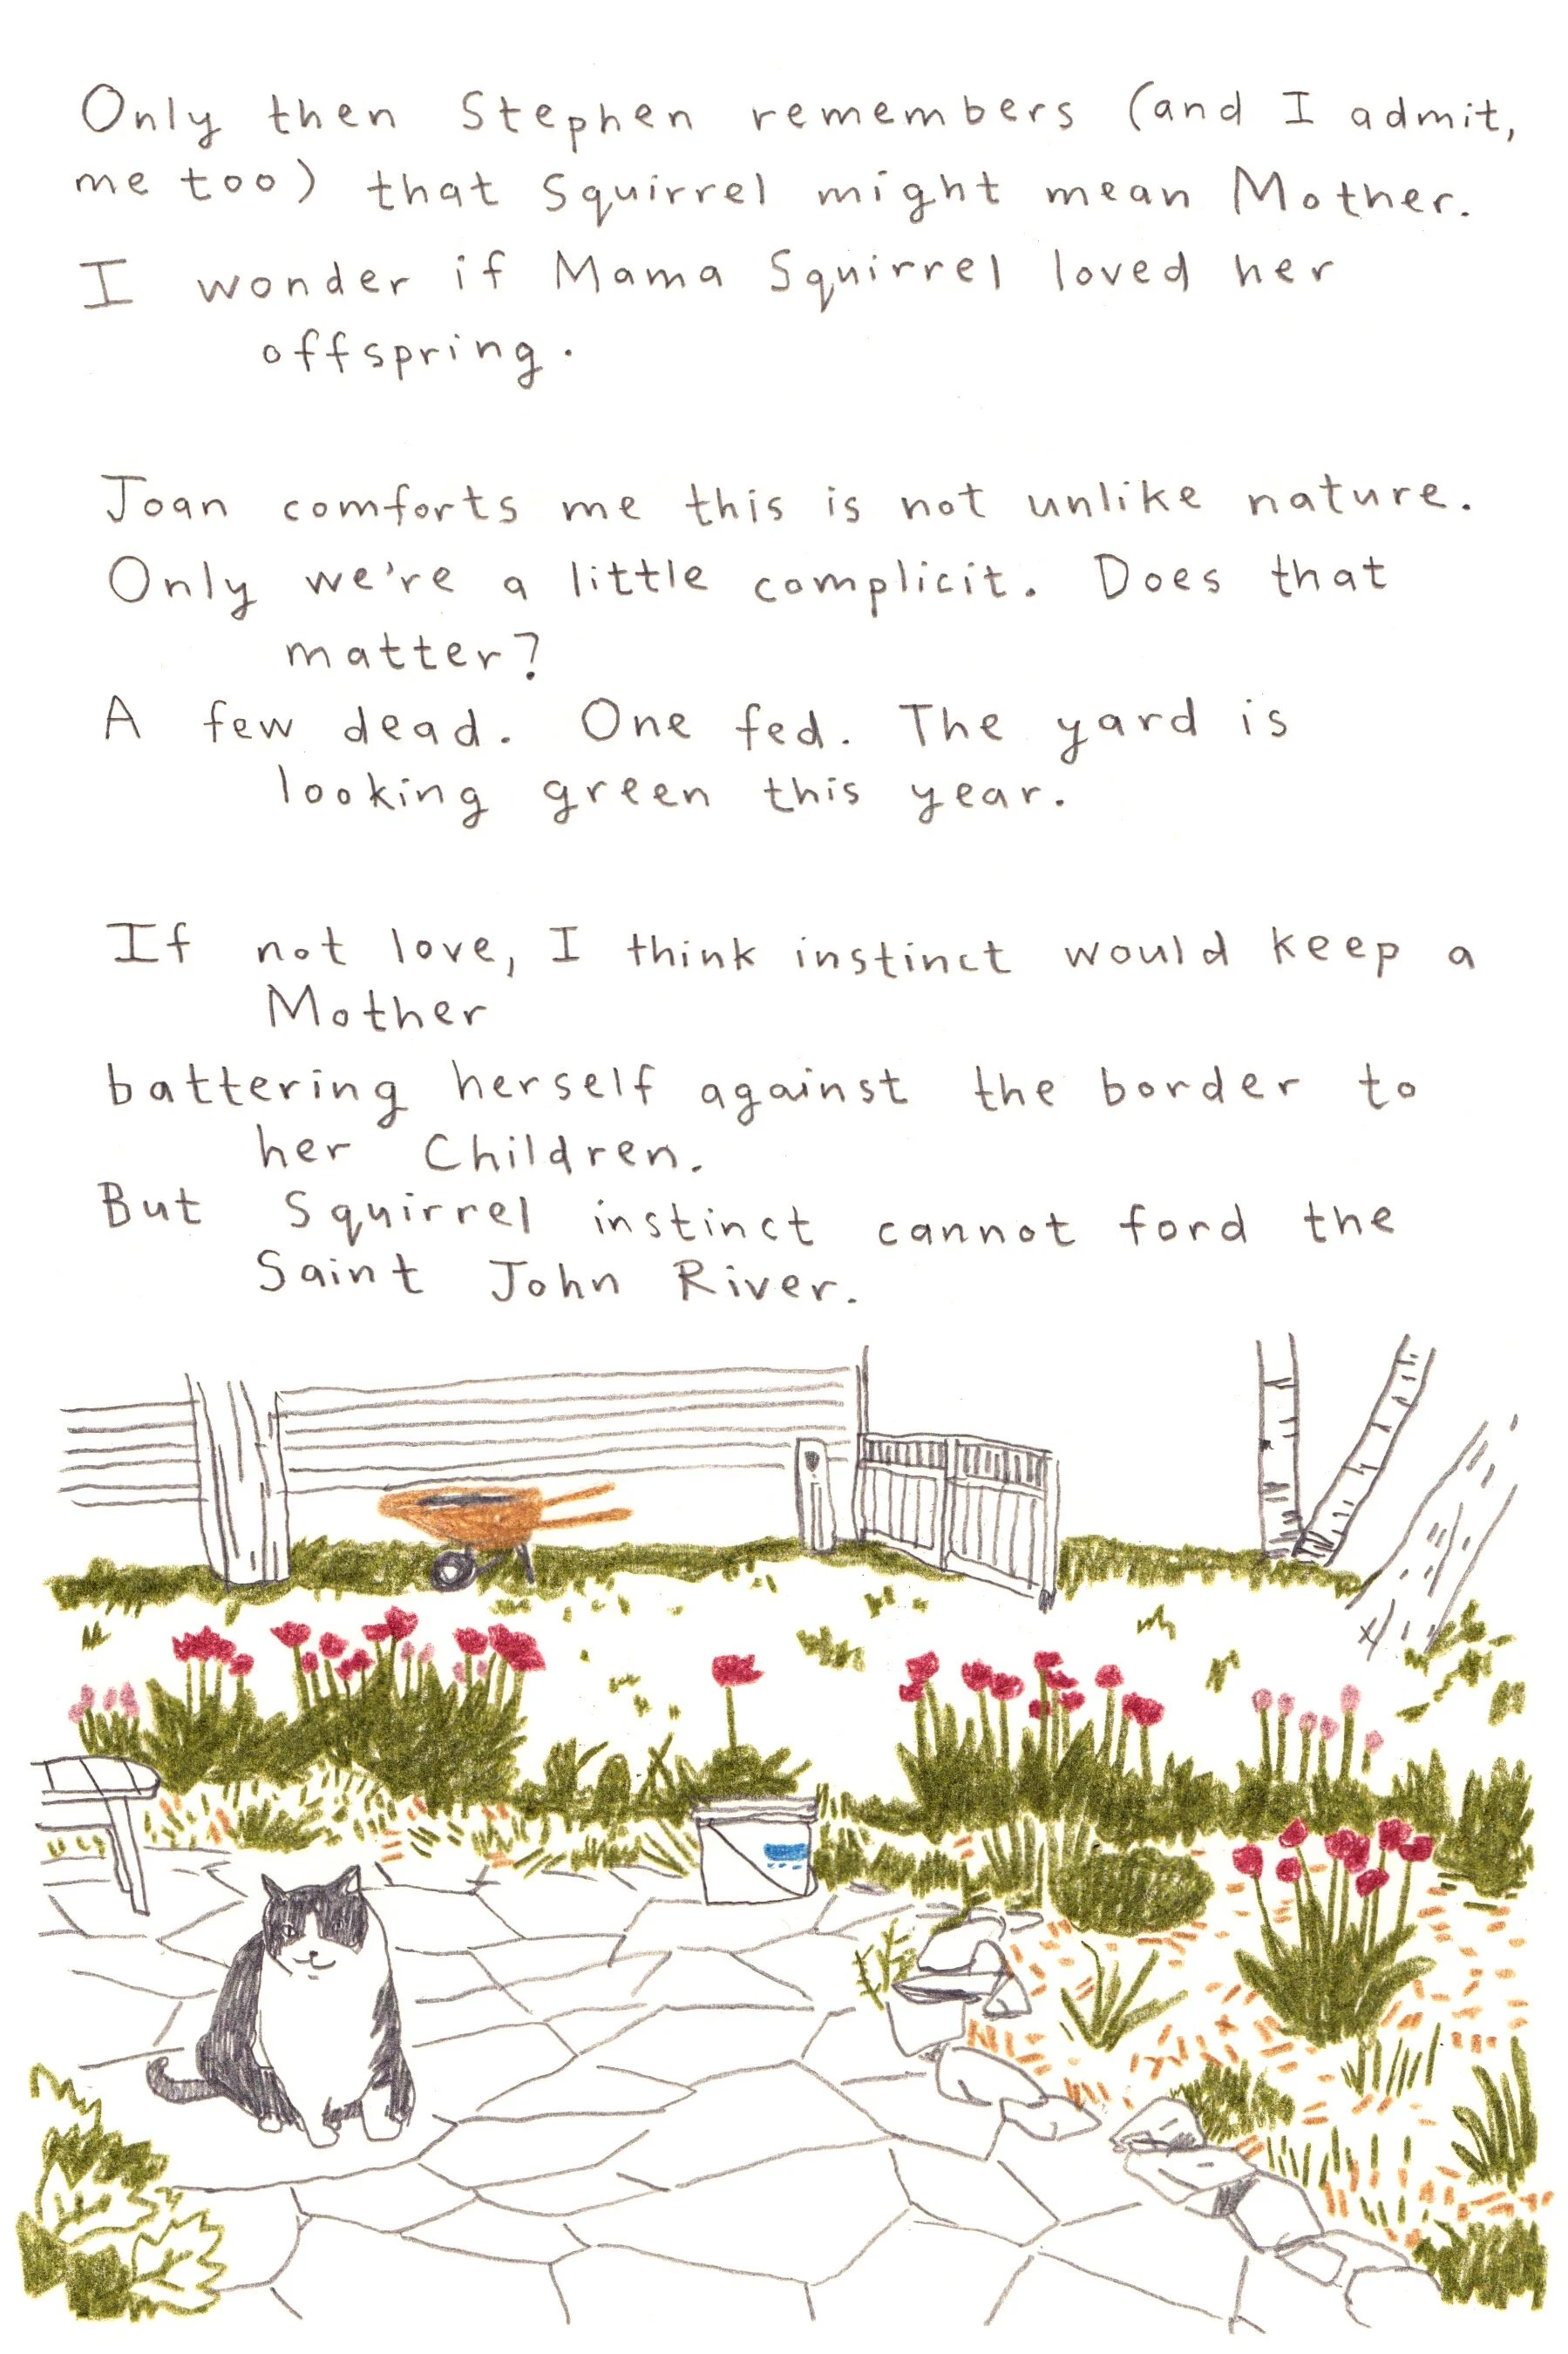 Only then Stephen remembers (and I admit,
me too) that Squirrel might mean Mother.
I wonder if Mama Squirrel loved her
offspring.
Joan comforts me this is not unlike nature.
Only we're a little complicit. Does that
matter?
A few dead. One fed. The yard is
looking green this year.
If not love, I think instinct would keep a
Mother
battering herself against the border to
her Children.
But Squirrel instinct cannot ford the
Saint John River.